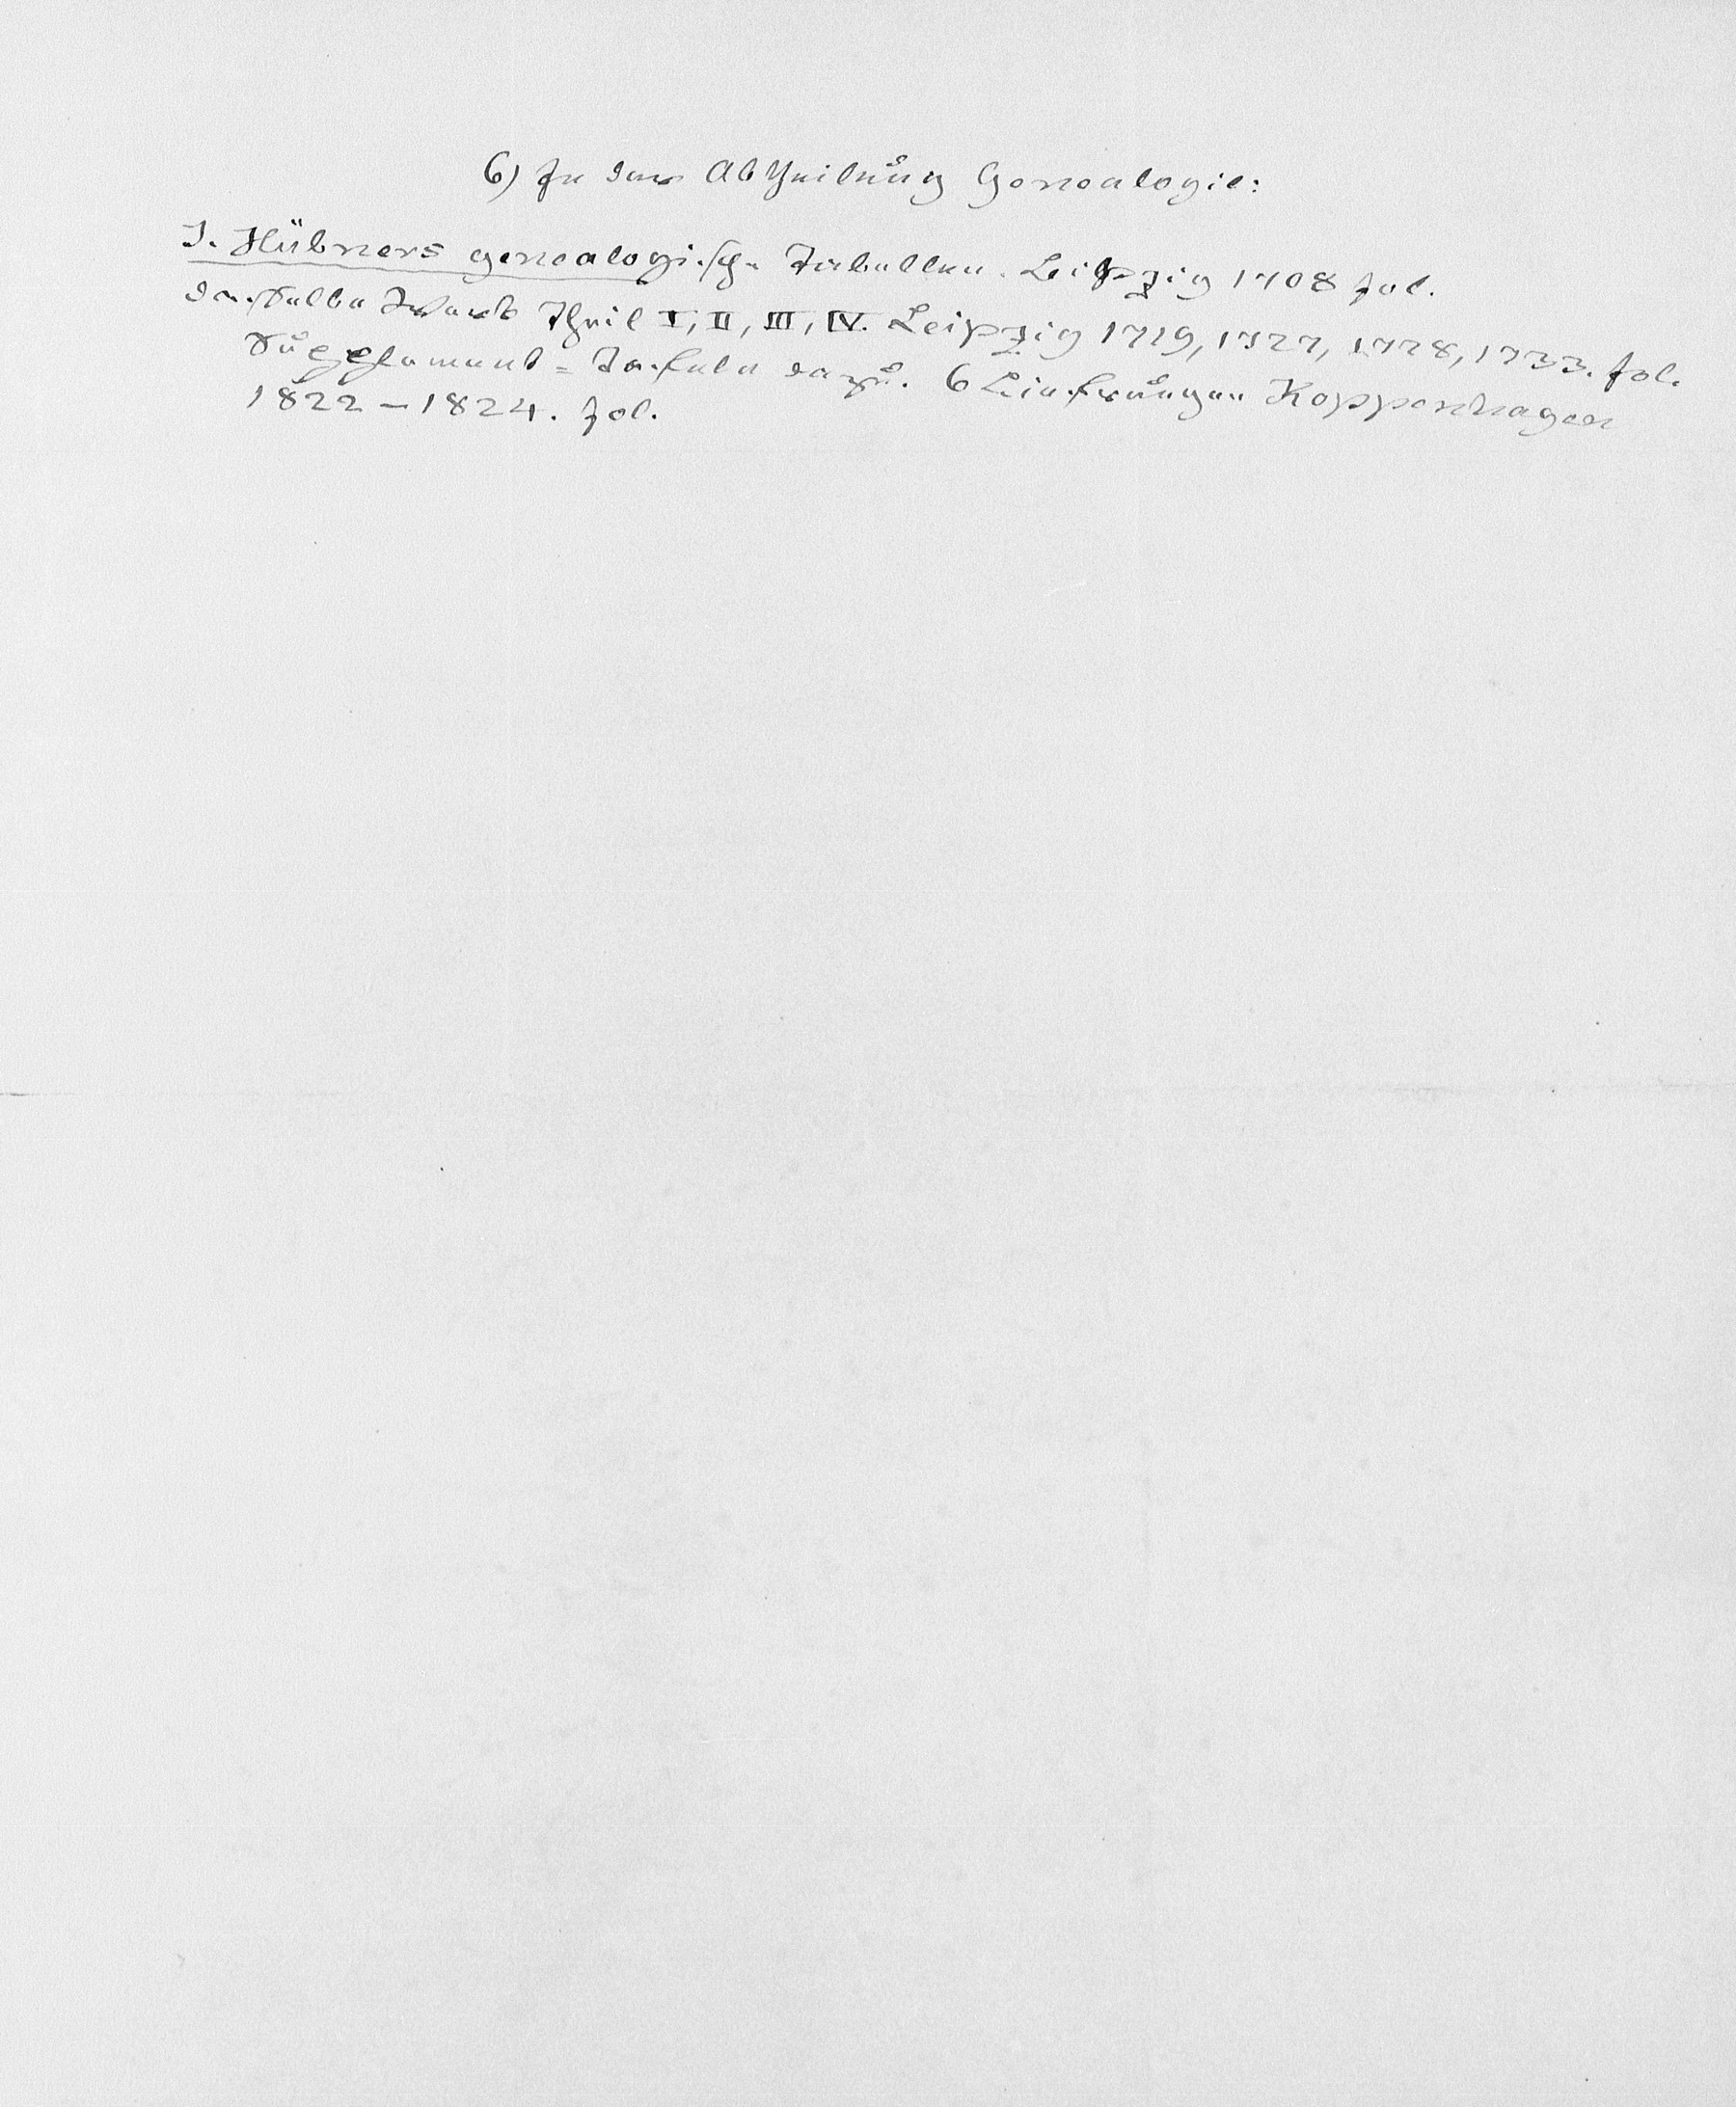 6) In der Abtheilung Genealogie:
J. Hübners genealogische Tabellen. Leipzig 1708 fol.
dasselbe Werk Theil I, II, III, IV. Leipzig 1719, 1727, 1728, 1733. fol.
Supplement=Tafeln dazu. 6 Lieferungen Koppenhagen
1822 – 1824. fol.